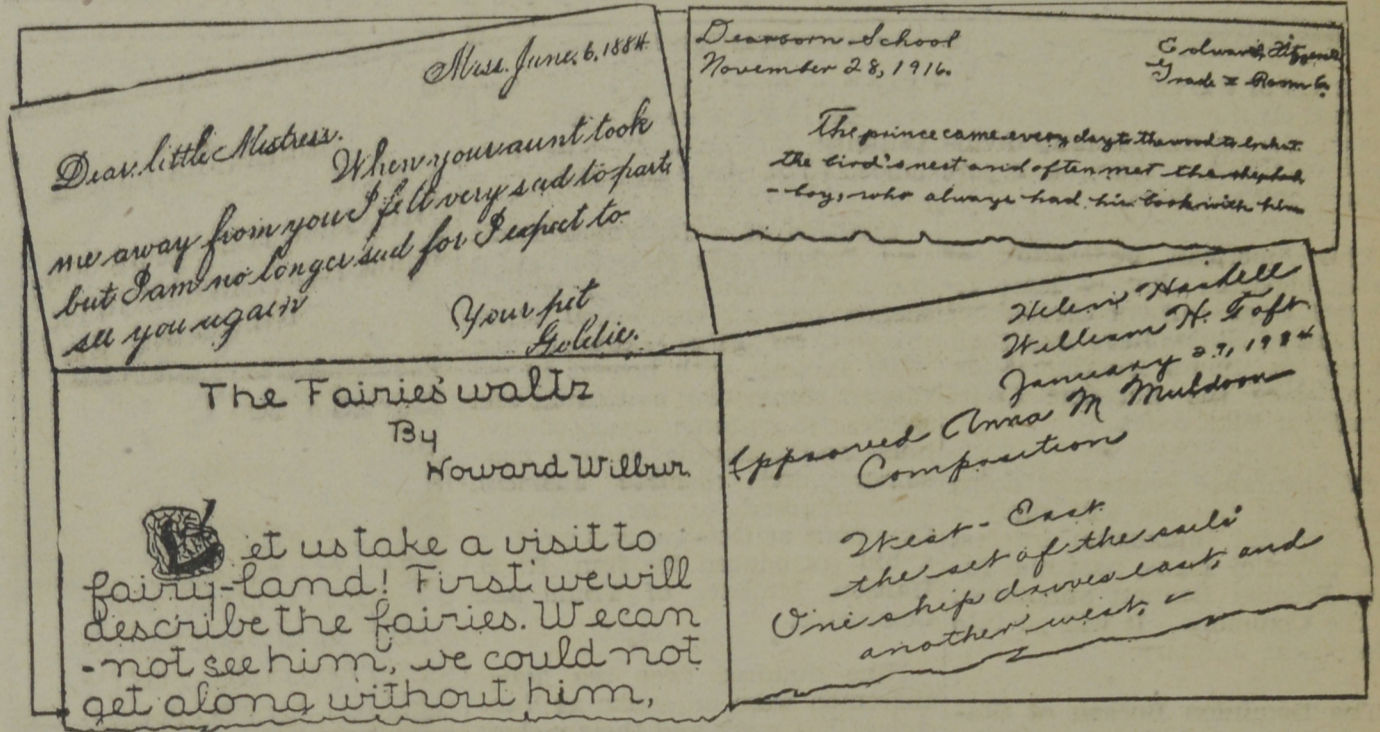 Miss. June. 6. 1884
Dear little Mistress.
When your aunt took
me away from you I felt very sad to part,
but I am no longer sad for I expect to
see you again
Your pet
Goldie.
Dearborn School
November 28, 1916.
Edward Fitzgerald
Grade X Room 6.
The prince came every day to the wood to look at
the bird's nest and often met the shepherd
-boy, who always had his book with him
The Fairies' waltz
By
Howard Wilbur.
Let us take a visit to
fairy-land! First we will
describe the fairies. We can
-not see him, we could not
get along without him,
Helen Haskell
William H. Taft
January 29, 1924
Approved Anna M Muldoon
Composition
West - East
the set of the sails
One ship drives east, and
another west, -